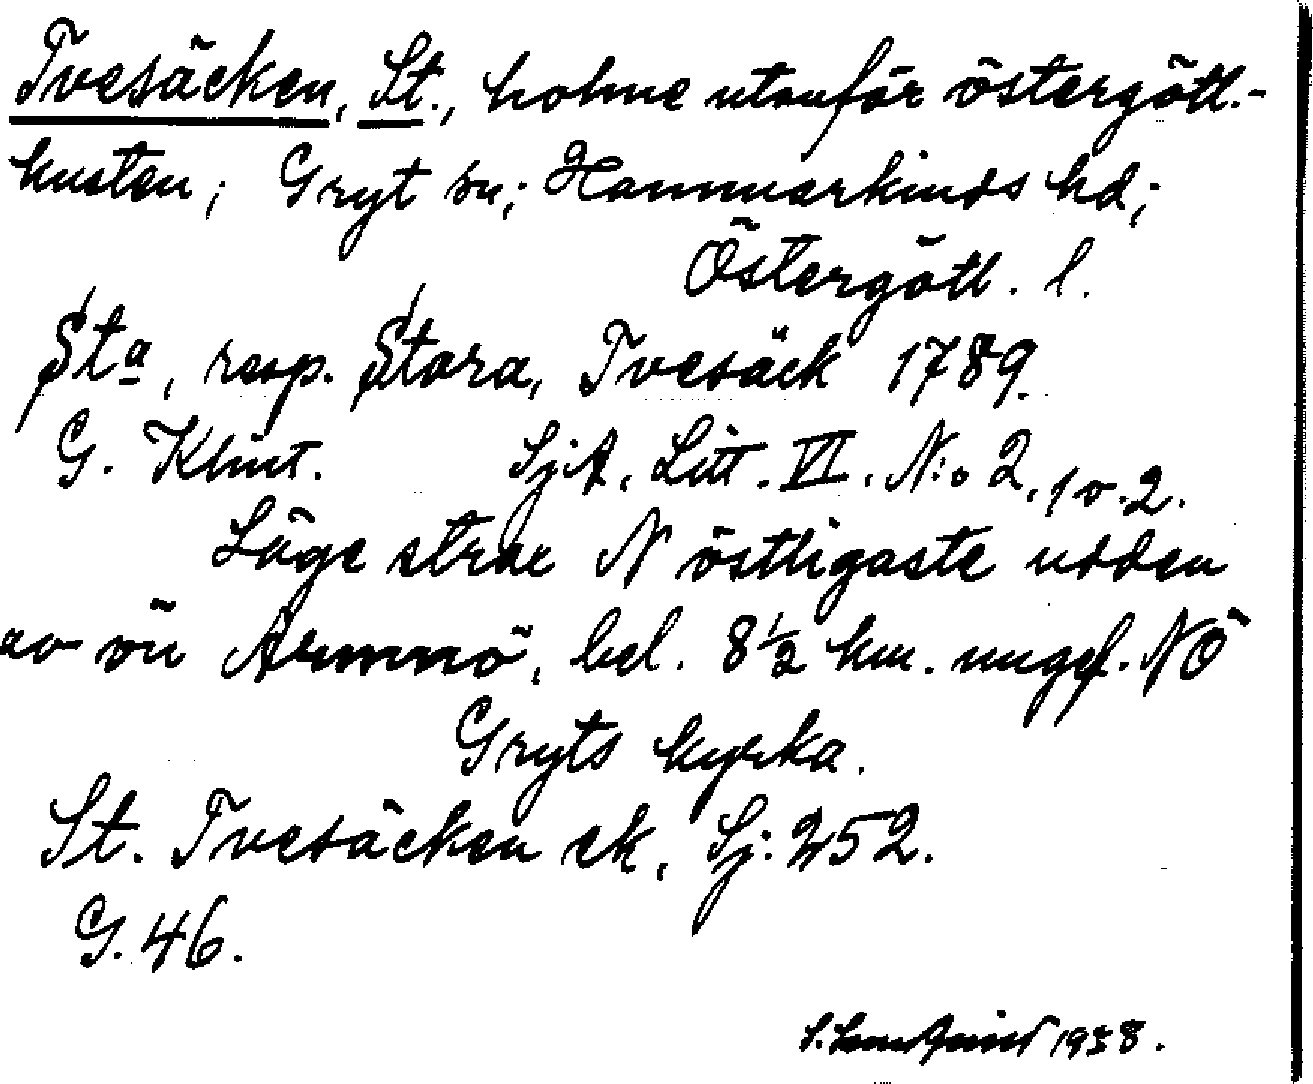 Tvesäcken, St., holme utanför östergötl.-
kusten; Gryt sn; Hammarkinds hd;
Östergötl. l.
Sta, resp. Stora, Tvesäck 1789.
G. Klint. SjA, Litt. VI. N:o 2, 1 o. 2.
Läge strax N östligaste udden
av ön Ämmnö, bel. 8½ km. ungef. NÖ
Gryts kyrka.
St. Tvesäcken ek, Sj: 252.
G. 46.
1938.